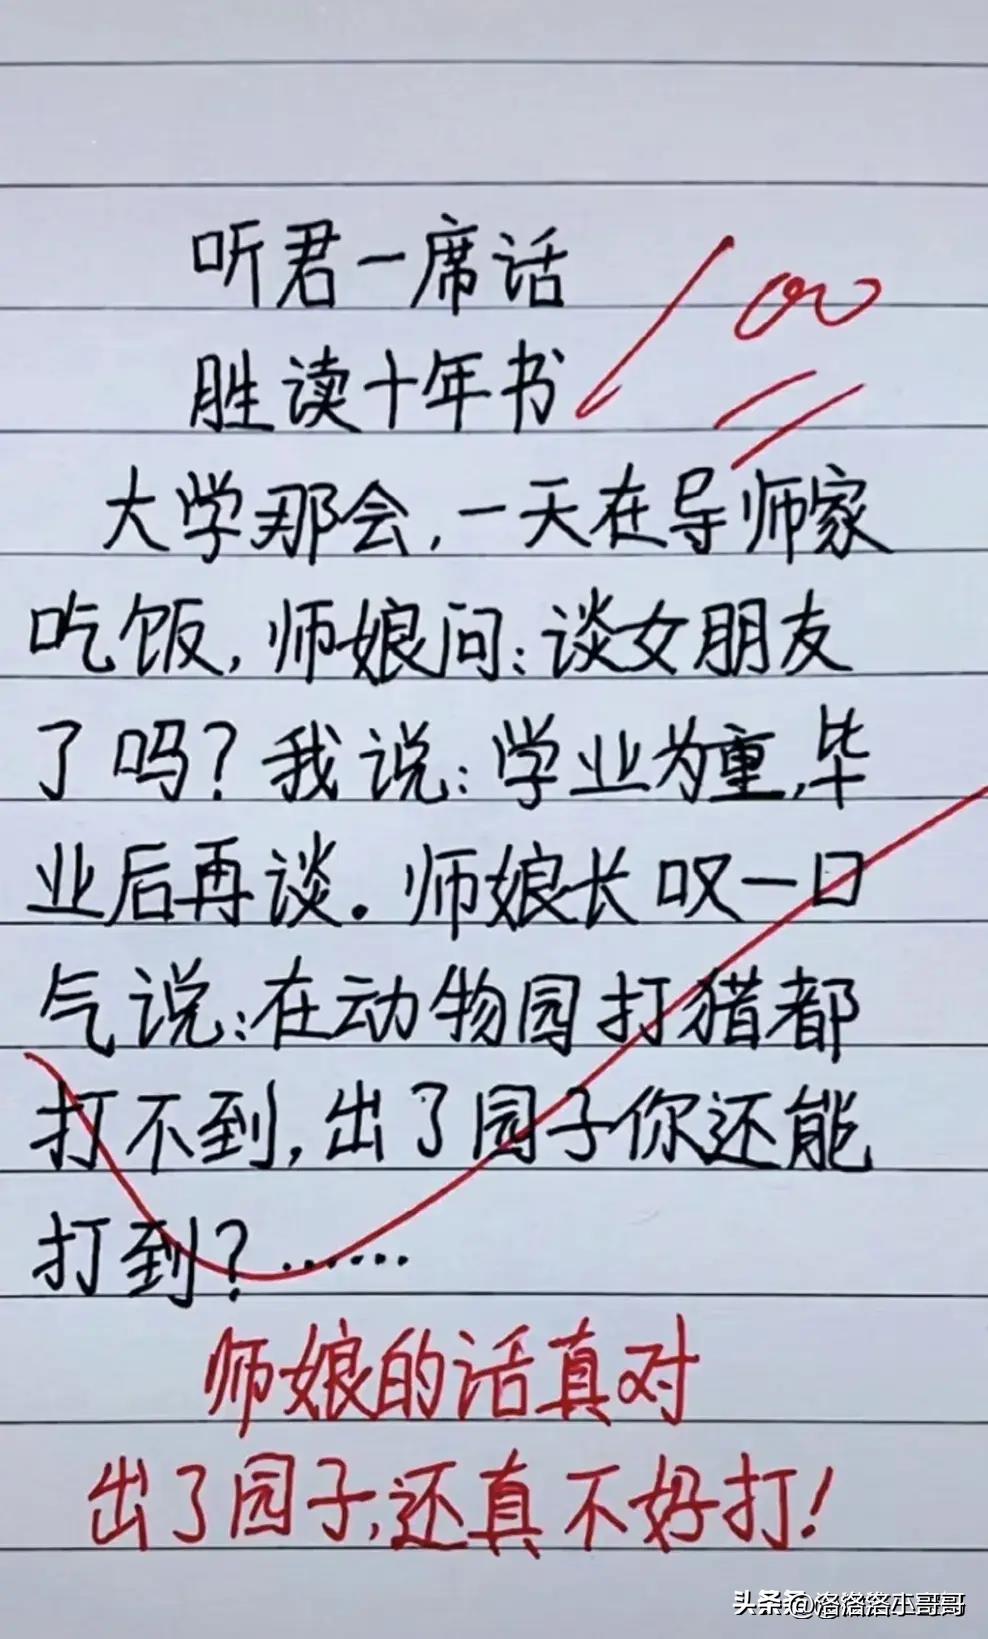 听君一席话
胜读十年书
100
大学那会,一天在导师家
吃饭,师娘问:谈女朋友
了吗?我说:学业为重,毕
业后再谈。师娘长叹一口
气说:在动物园打猎都
打不到,出了园子你还能
打到?……
师娘的话真对
出了园子,还真不好打!
头条 @洛洛洛小哥哥